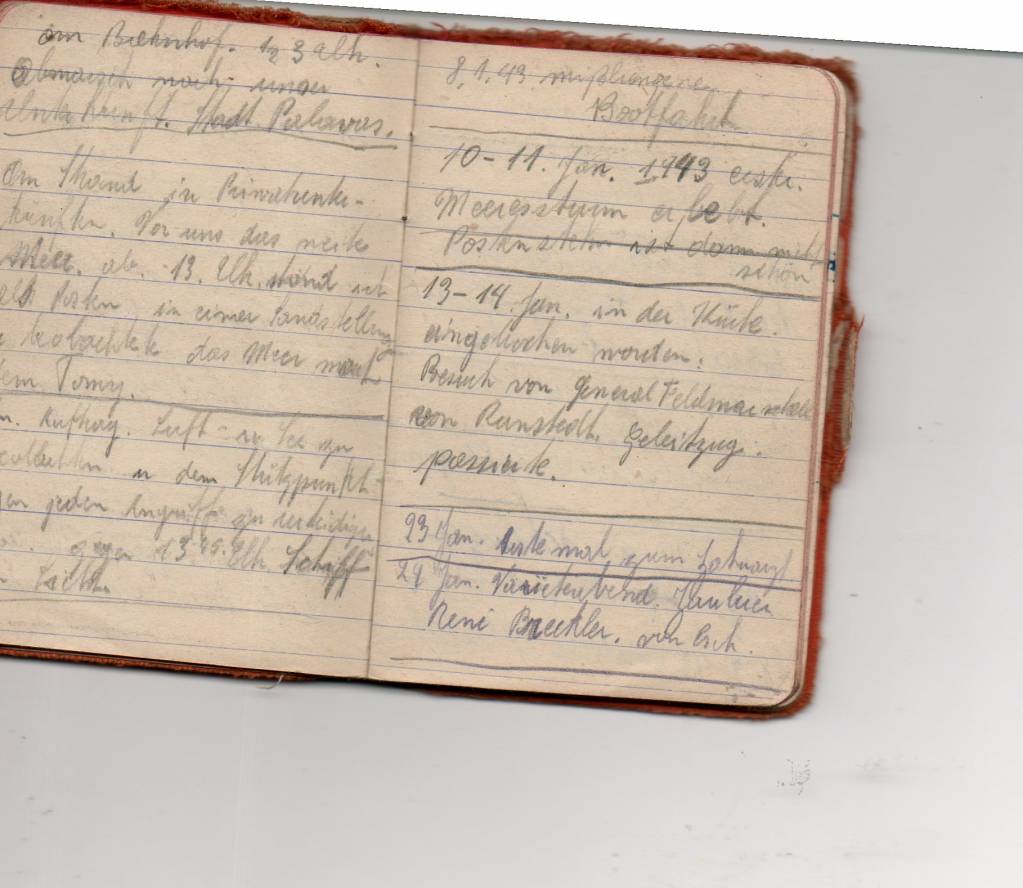 am Bahnhof. 1/2 3 Uhr.
Abmarsch nach unser
Unterkunft. Stadt Palavas.
Am Strand in Privatunter-
künften. Vor uns das weite
Meer. ab 13. Uhr stand ich
als Posten in einer Sandstellung
beobachtete das Meer nach
dem Tomy.
Auftrag. Luft- u. See zu
beobachten u dem Stützpunkt
gegen jeden Angriff zu verteidigen
gegen 13.45. Uhr. Schiff
8.1.43 mißlungene
Bootfahrt
10-11. Jan. 1943 erste.
Meeressturm erlebt.
Postenstehn ist dann nicht
schön
13-14. Jan. in der Küche.
eingebrochen worden.
Besuch von General Feldmarschall
von Runstedt. Geleitzug.
passierte.
23 Jan. erste mal zum Zahnarzt
24 Jan. Varieteabend.
René von Esch.